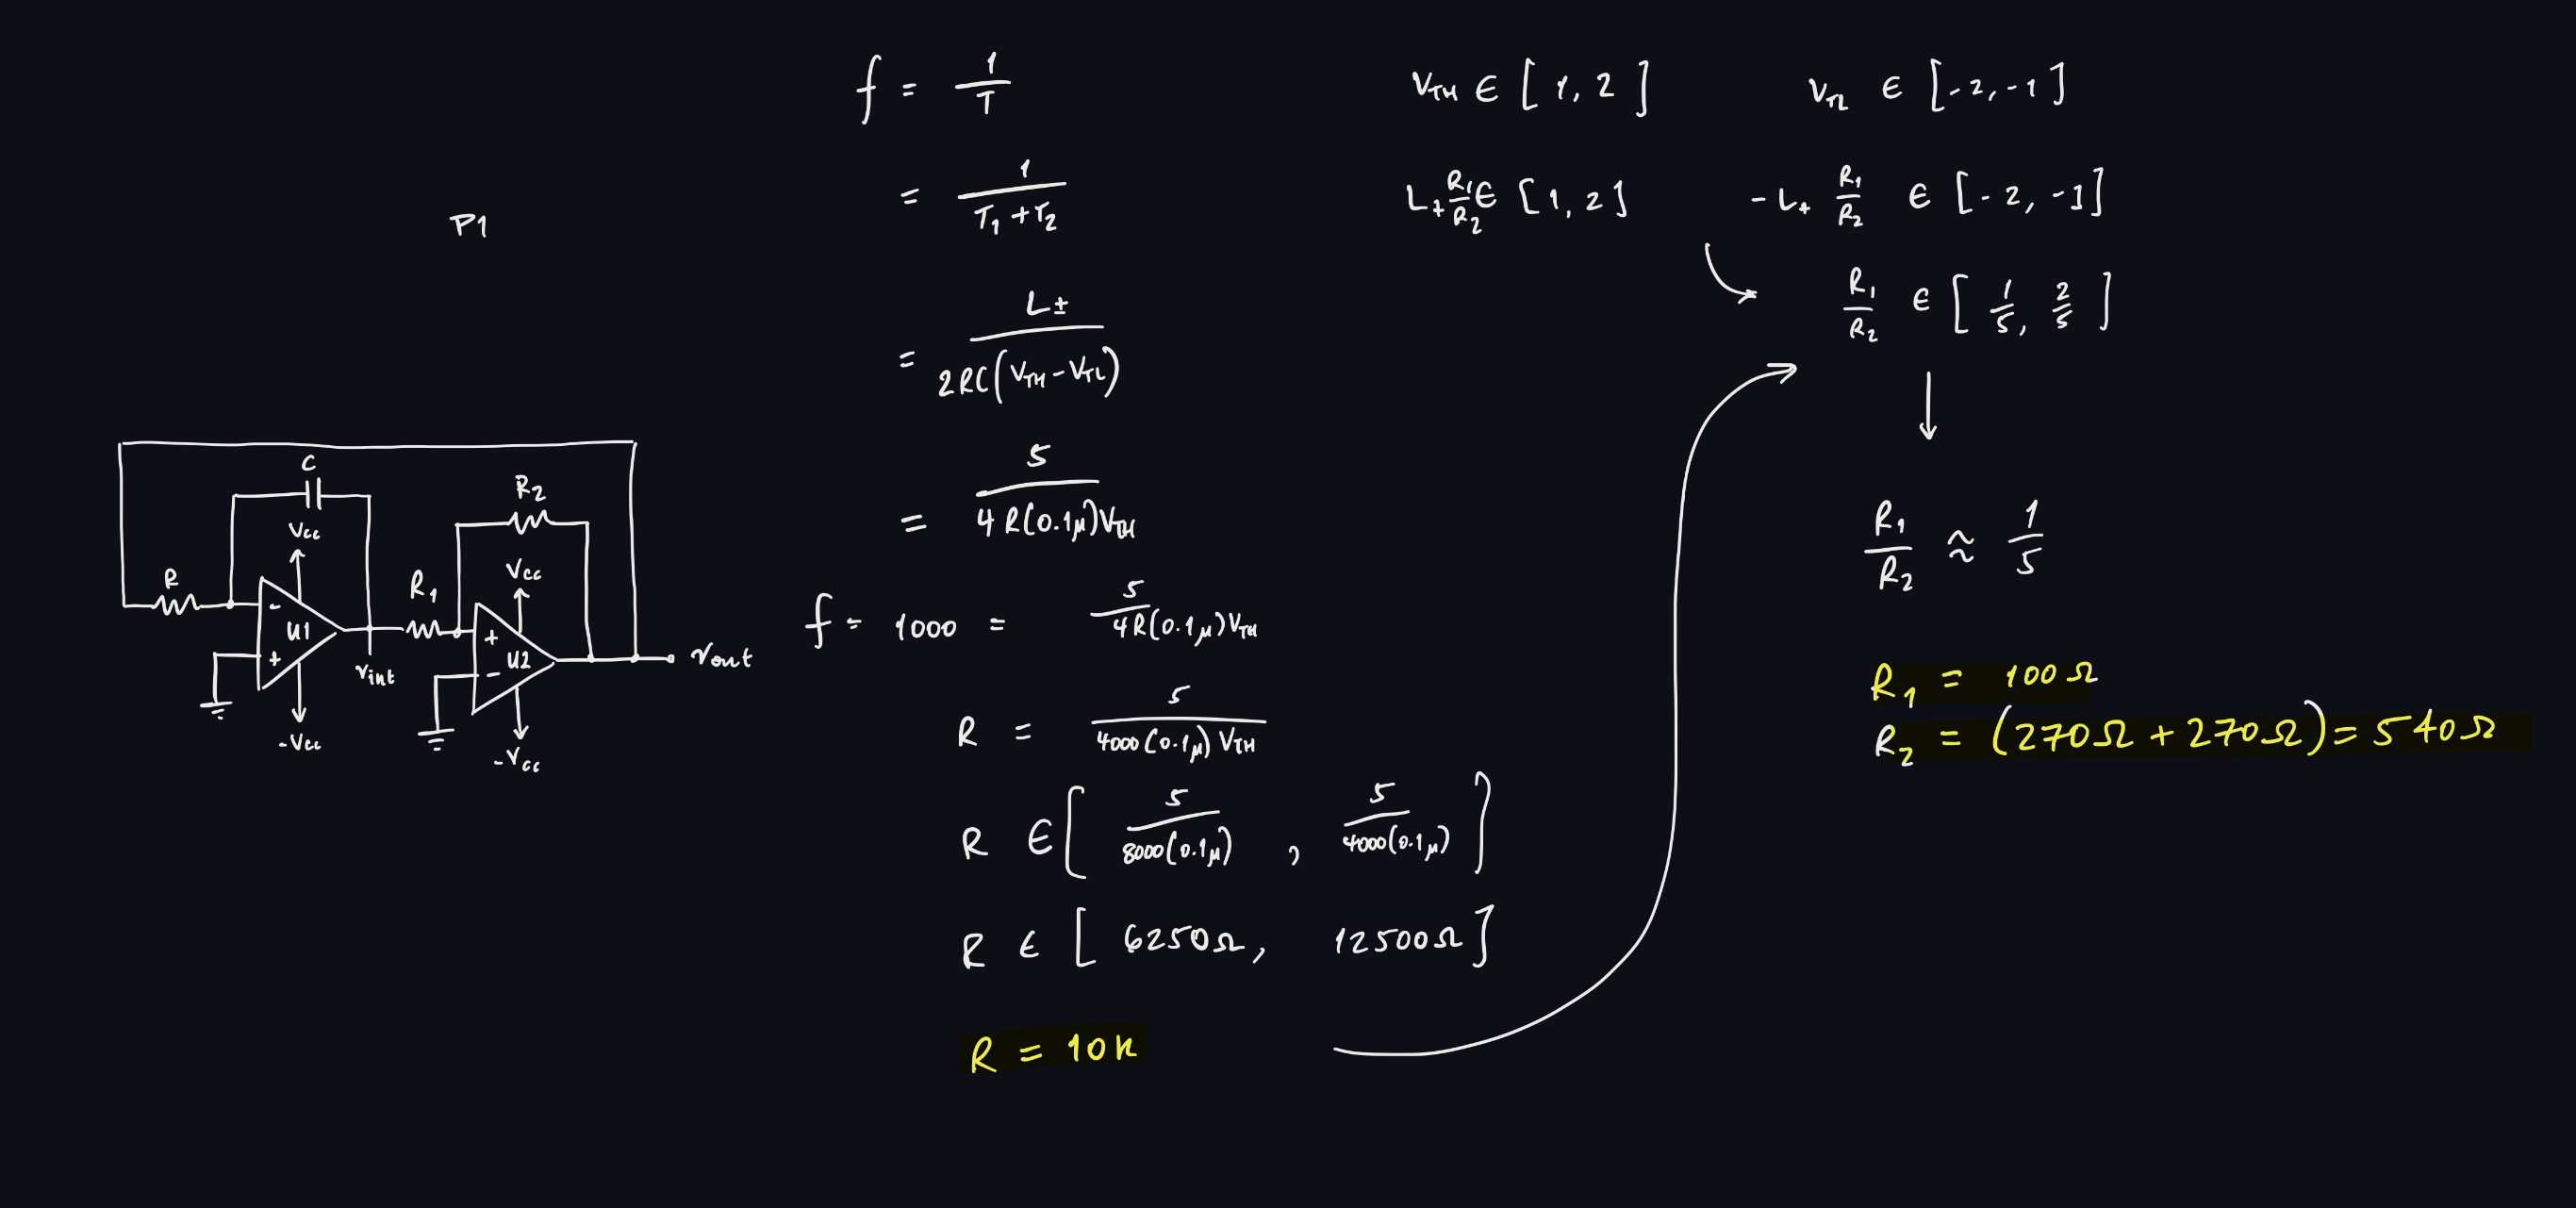 P1
C
Vcc
R
-
U1
+
-Vcc
Vint
R1
R2
Vcc
+
U2
-
-Vcc
Vout
f = 1/T
= 1/(T1 + T2)
= L±/(2RC(VTH - VTL))
= 5/(4R(0.1μ)VTH)
f = 1000 = 5/(4R(0.1μ)VTH)
R = 5/(4000(0.1μ)VTH)
R ∈ [5/(8000(0.1μ)), 5/(4000(0.1μ))]
R ∈ [6250Ω, 12500Ω]
R = 10k
VTH ∈ [1, 2] VTL ∈ [-2, -1]
L+ R1/R2 ∈ [1, 2] -L+ R1/R2 ∈ [-2, -1]
R1/R2 ∈ [1/5, 2/5]
R1/R2 ≈ 1/5
R1 = 100Ω
R2 = (270Ω + 270Ω) = 540Ω